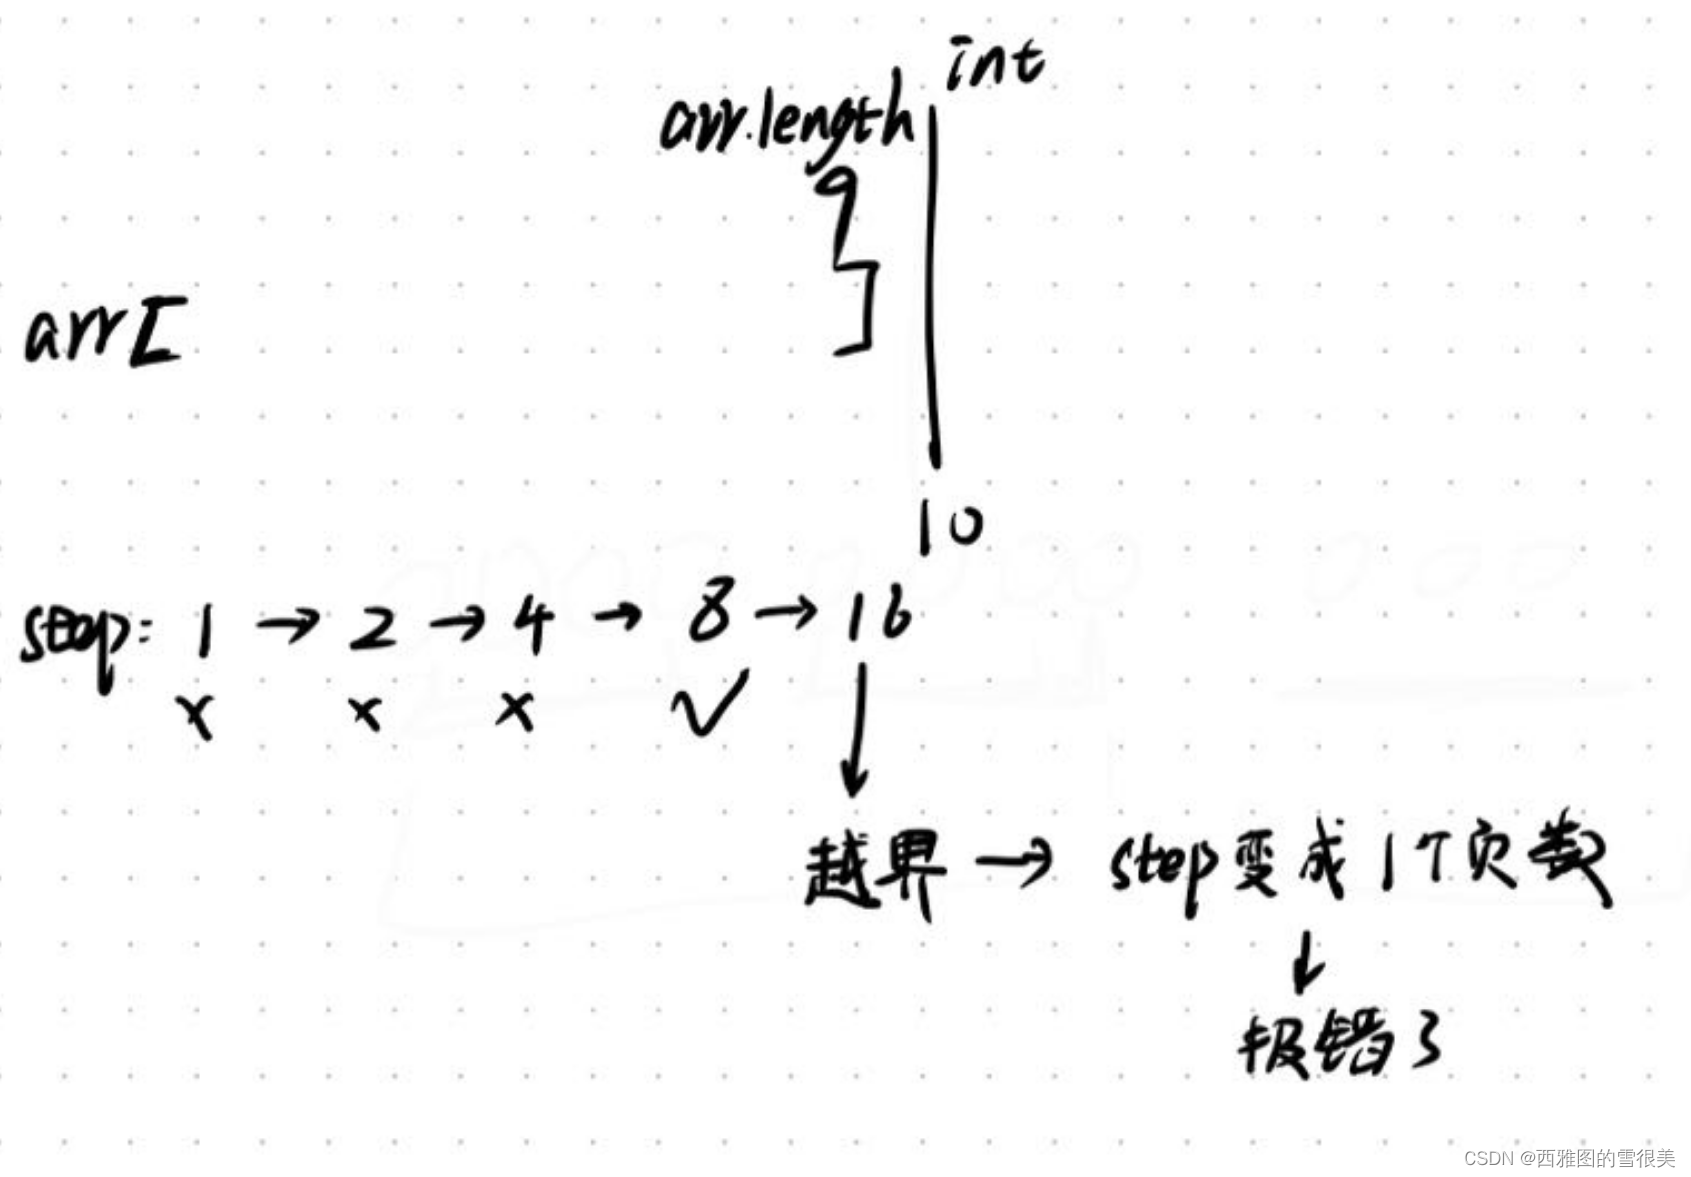 int
arr.length
9
arr[ ]
10
step: 1 → 2 → 4 → 8 → 16
x x x √
越界 → step变成1个负数
报错了
CSDN @西雅图的雪很美